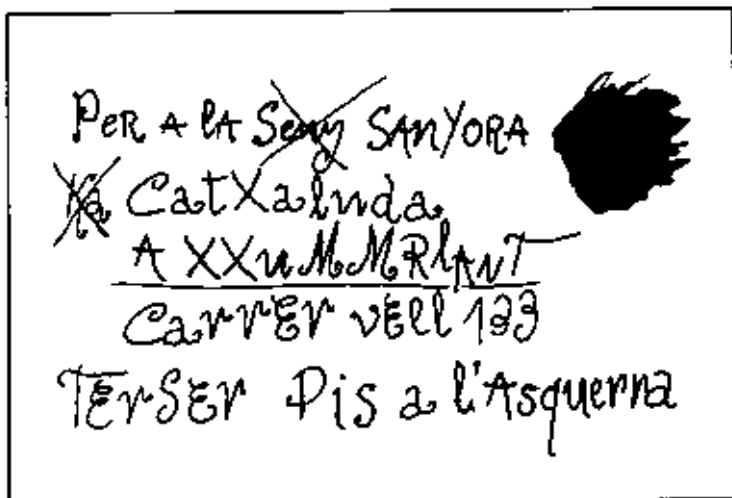 PER A lA Seny SANYORA
la CatXaluda
A XXuMMRlANT
CarrEr vEll 133
TErSEr Pis a l'Asquerna